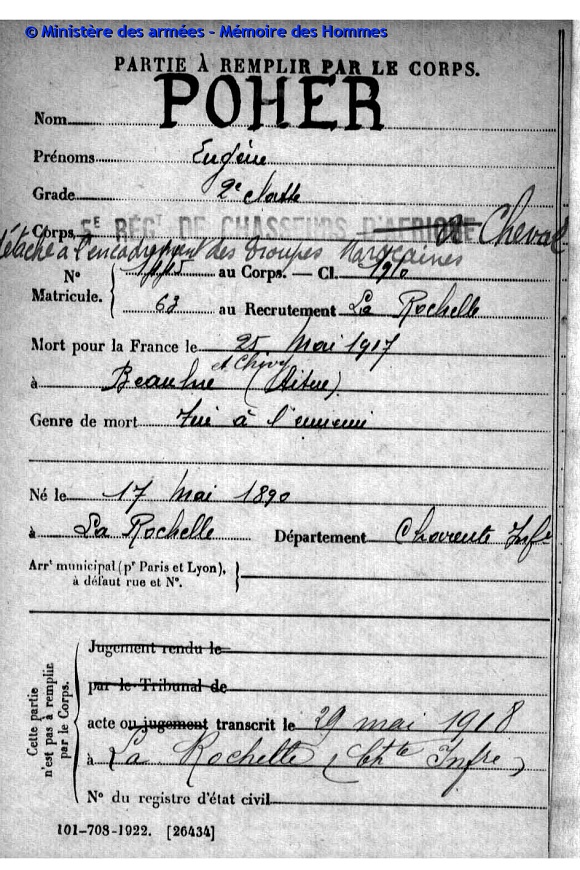 © Ministère des armées - Mémoire des Hommes
PARTIE À REMPLIR PAR LE CORPS.
Nom POHER
Prénoms Eugène
Grade 2e classe
Corps 5E RÉGT DE CHASSEURS D'AFRIQUE à Cheval
détaché à l'encadrement des troupes Marocaines
No au Corps. — Cl. 1910
Matricule. 63 au Recrutement La Rochelle
Mort pour la France le 25 Mai 1917
et Chivy
à Beaulne (Aisne)
Genre de mort Tué à l'ennemi
Né le 17 Mai 1890
à La Rochelle Département Charente Infre
Arrt municipal (pr Paris et Lyon),
à défaut rue et No.
Cette partie
n'est pas à remplir
par le Corps.
Jugement rendu le
par le Tribunal de
acte ou jugement transcrit le 29 mai 1918
à La Rochelle (Chte Infre)
No du registre d'état civil
101-708-1922. [26434]